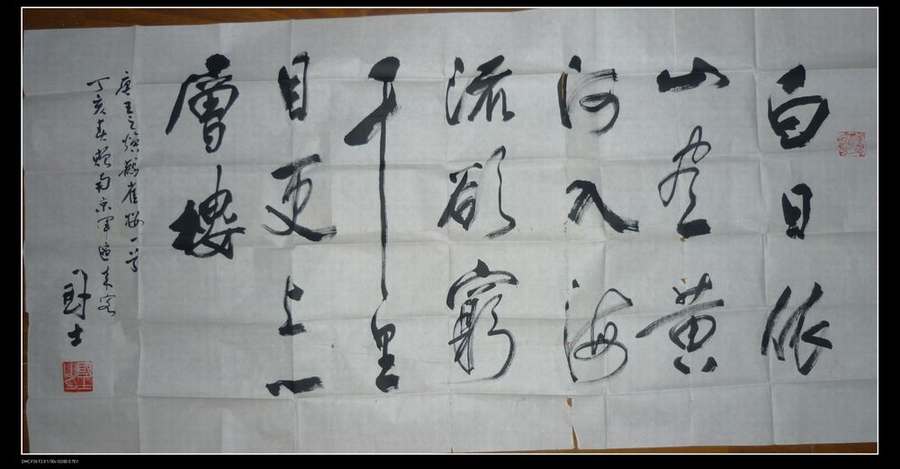 白日依
山尽黄
河入海
流欲窮
千里
目更上一
層樓
唐王之涣鹳雀楼一首
丁亥春 南京军区
士